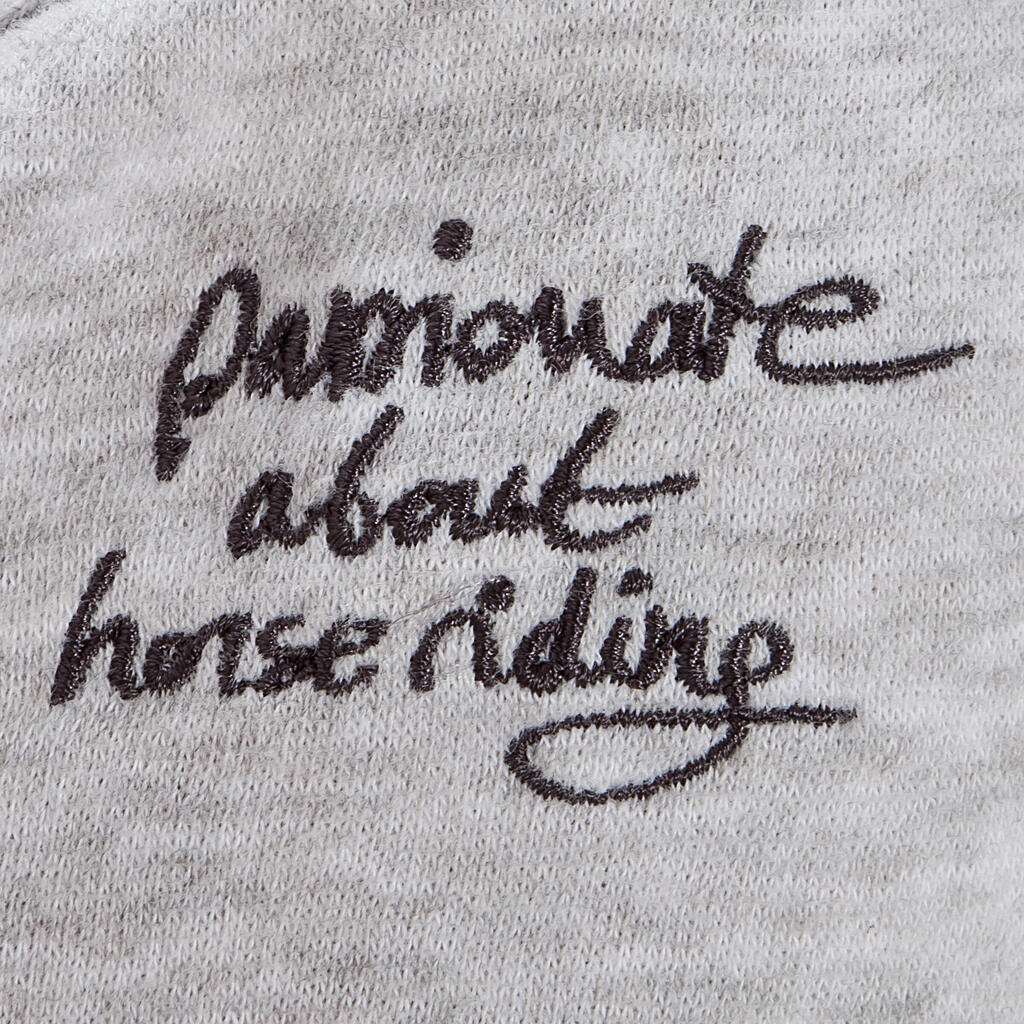 passionate
about
horse riding